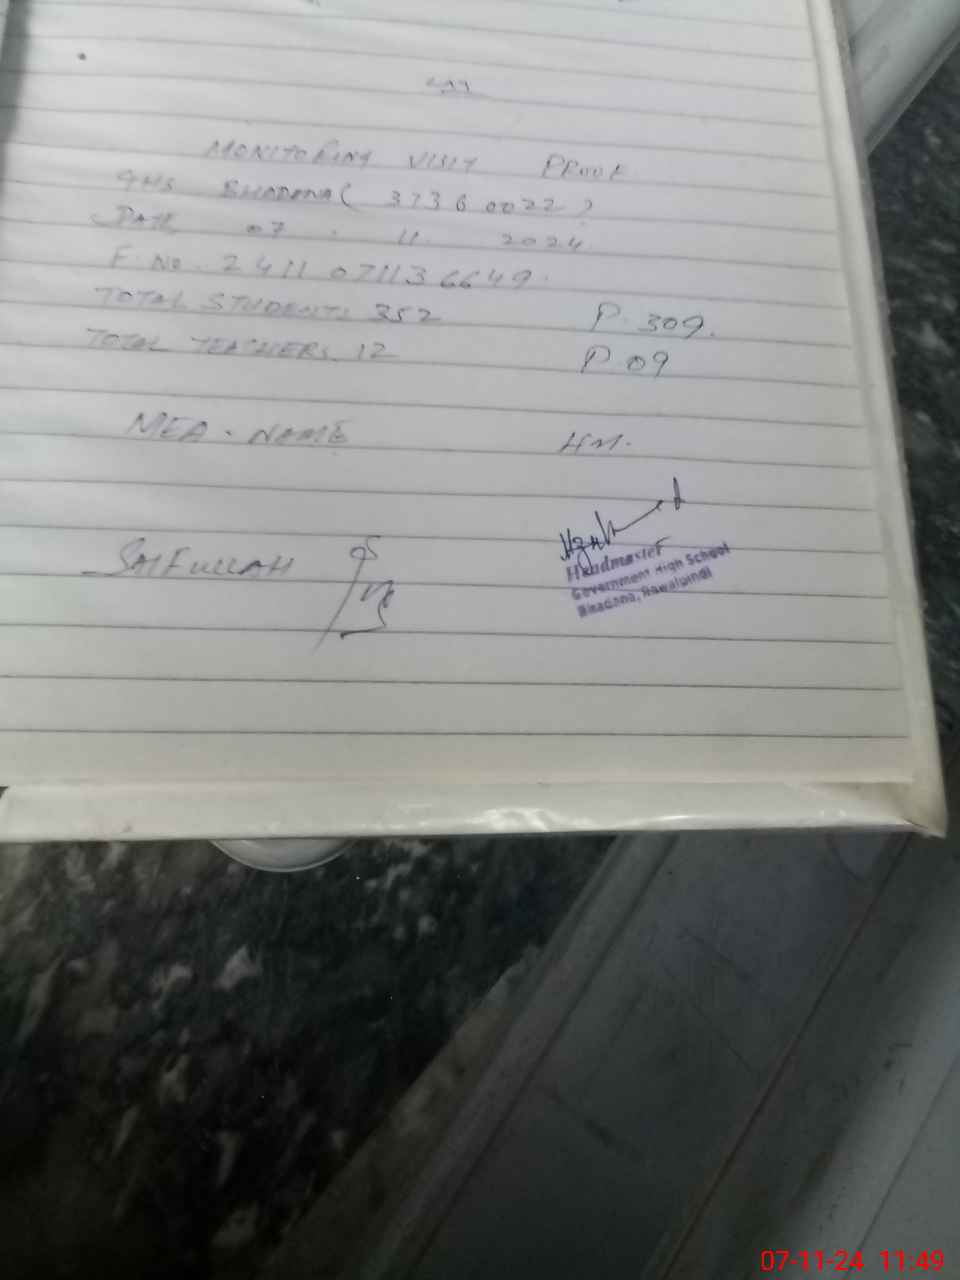 MONITORING VISIT PROOF
GHS BHADANA ( 37360022 )
DATE 07 . 11 . 2024
F. NO. 2411071136649.
TOTAL STUDENTS 352 P. 309.
TOTAL TEACHERS 12 P. 09
MEA. NAME HM.
SAIFULLAH
Headmaster
Government High School
Bhadana, Rawalpindi
07-11-24 11:49